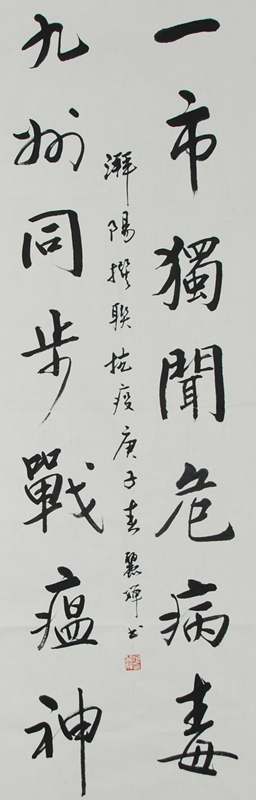 一市獨聞危病毒
九州同步戰瘟神
陽撰联抗疫庚子春